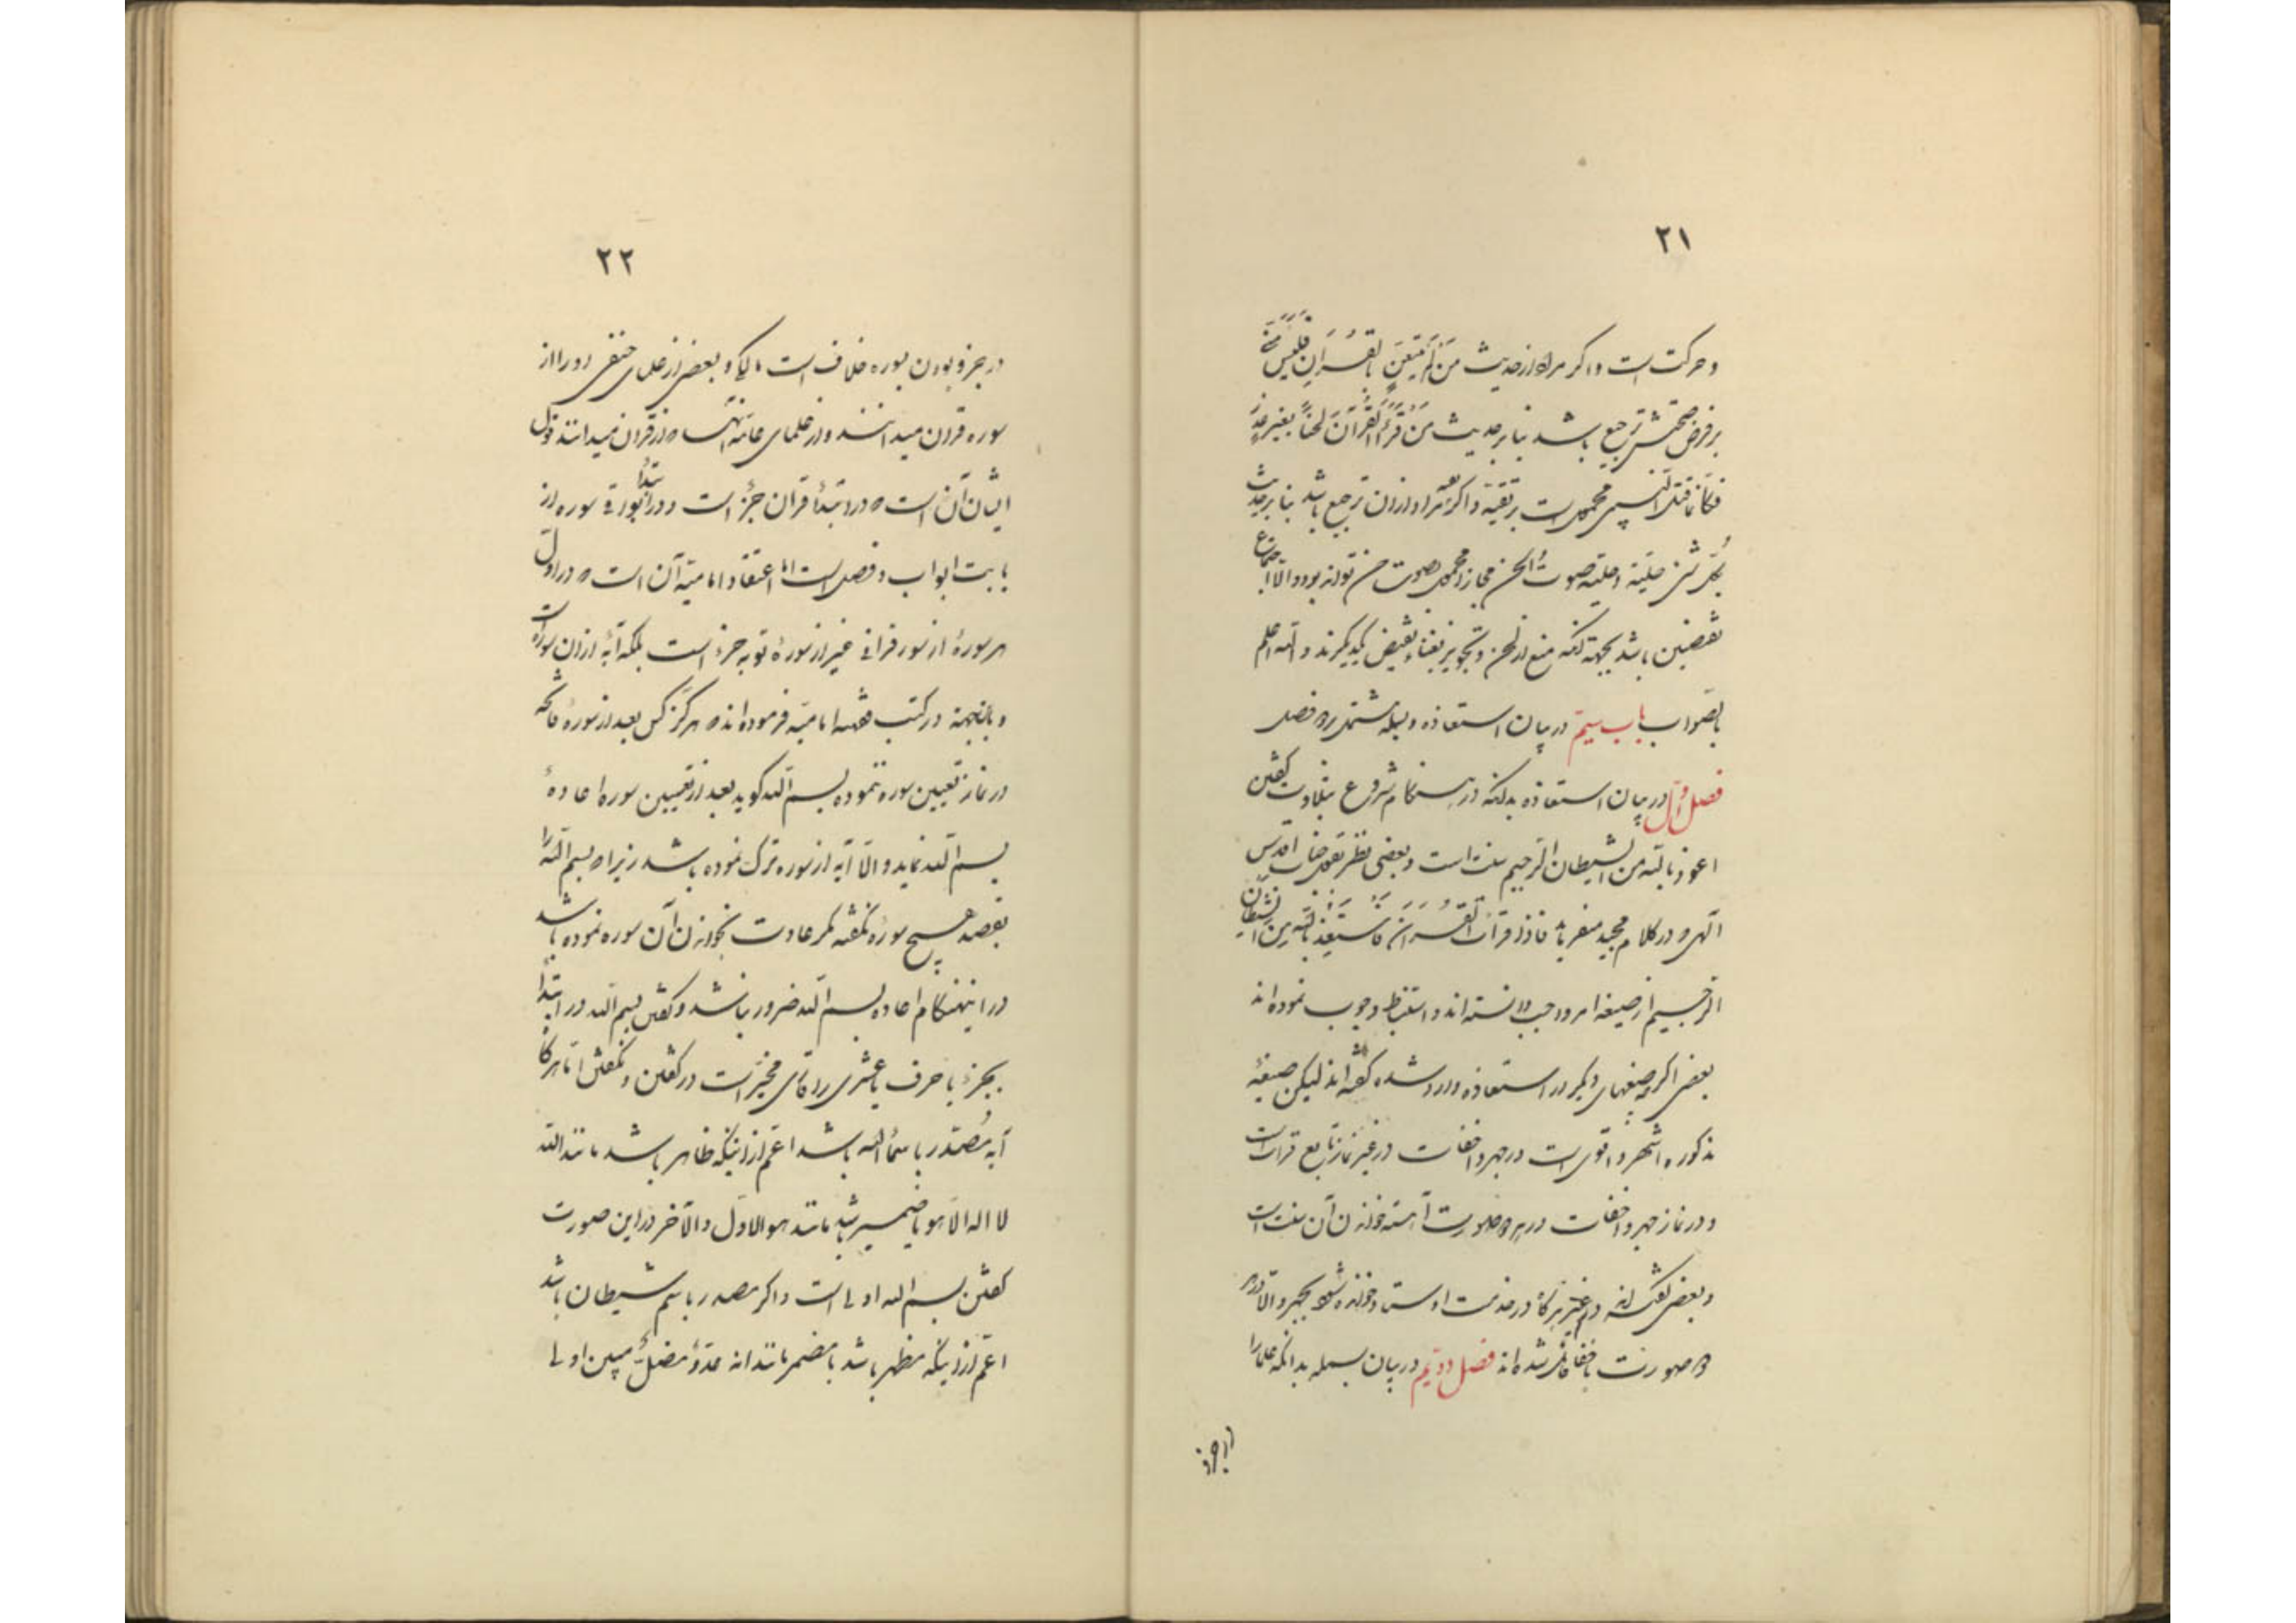 ۲۱
و حرکت است و اگر مراد از حدیث مَن لَم یَتَغَنَّ بِالقُرآنِ فَلَیسَ
بر فرض صحتش ترجیع باشد بنا بر حدیث مَن قَرَأَ القُرآنَ لحناً بغیر
محمول است بر تقیّه و اگر مراد از آن ترجیع باشد بنا بر حدیث
لکلّ شئ حلیة و حلیة صوت الحسن
نقیضین باشد بجهة آنکه منع از لحن و تجویز بغناء نقیض یکدیگرند و الله اعلم
بالصّواب باب سیّم در بیان استعاذه و بسمله مشتمل بر دو فصل
فصل اوّل در بیان استعاذه بدانکه در هنگام شروع بتلاوت گفتن
اعوذ بالله من الشیطان الرجیم سنت است و بعضی نظر بقول جناب اقدس
الهی که در کلام مجید میفرماید فاذا قرأت القُرآنَ فَاستَعِذ بِاللهِ مِنَ الشیطان
الرّجیم از صیغه امر واجب دانسته‌اند و استنباط وجوب نموده‌اند
بعضی اگرچه صیغهای دیگر در استعاذه وارد شده گفته‌اند لیکن صیغهٔ
مذکوره اشهر و اقوی است در جهر و اخفات در غیر نماز تابع قراءت است
و در نماز جهر و اخفات در هر دو صورت آهسته خواندن آن سنت است
و بعضی گفته‌اند در غیر نماز هرگاه در خدمت اوستاد خوانده شود بجهر و الّا در هر
دو صورت باخفا قائل شده‌اند فصل دویّم در بیان بسمله بدانکه علما را
۲۲
در جزو بودن سوره خلاف است مالکی و بعضی از علمای حنفی او را از
سوره قرآن میدانند و از علمای عامه از قرآن نمیدانند و قول
ایشان آن است که در ابتدأ قرآن جزء است و در ابتدأ بواقی سوره از
بابت ابواب و فصل است امّا اعتقاد امامیّه آن است که در اوّل
هر سورهٔ از سور قرآنی غیر از سورهٔ توبه جزء است بلکه آیهٔ از آن سوره است
و باینجهة در کتب فقه امامیّه فرموده‌اند که هرگز کس بعد از سورهٔ فاتحه
در نماز تعیین سوره ننموده بسم الله گوید بعد از تعیین سوره اعادهٔ
بسم الله نماید و الّا آیهٔ از سوره ترک نموده باشد زیرا که بسم الله را
بقصد هیچ سوره نگفته مگر عادت بخواندن آن سوره نموده باشد
در اینهنگام اعاده بسم الله ضرور نباشد و گفتن بسم الله در ابتدأ
بجزء یا حزب یا عشری قاری مخیّر است در گفتن و نگفتن امّا هرگاه
آیه مُصَدّر باسمأ الله باشد اعمّ از اینکه ظاهر باشد مانند الله
لا اله الّا هو یا ضمیر باشد مانند هو الاوّل و الآخر در این صورت
گفتن بسم الله اولی است و اگر مصدر باسم شیطان باشد
اعمّ از اینکه مظهر باشد یا مضمر مانند انه عدوّ مضلّ مبین اولی